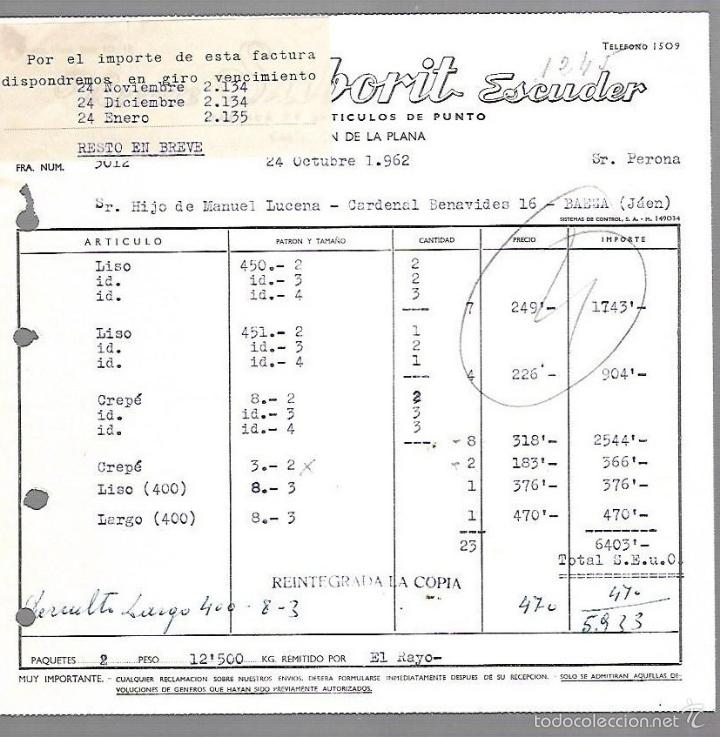 TELEFONO 1509
Por el importe de esta factura
dispondremos en giro vencimiento
24 Noviembre 2.134
24 Diciembre 2.134
24 Enero 2.135
RESTO EN BREVE
1245
borit Escuder
TICULOS DE PUNTO
N DE LA PLANA
FRA. NUM. 5012 24 Octubre 1.962 Sr. Perona
Sr. Hijo de Manuel Lucena - Cardenal Benavides 16 - BAEZA (Jáen)
SISTEMAS DE CONTROL, S. A. - M. 149034
ARTICULO PATRON Y TAMAÑO CANTIDAD PRECIO IMPORTE
Liso 450.- 2 2
id. id.- 3 2
id. id.- 4 3
7 249'- 1743'-
Liso 451.- 2 1
id. id.- 3 2
id. id.- 4 1
4 226'- 904'-
Crepé 8.- 2 2
id. id.- 3 3
id. id.- 4 3
8 318'- 2544'-
Crepé 3.- 2 x 2 183'- 366'-
Liso (400) 8.- 3 1 376'- 376'-
Largo (400) 8.- 3 1 470'- 470'-
23 6403'-
Total S.E.u.O.
REINTEGRADA LA COPIA
Largo 400 - 8-3 470 470
5933
PAQUETES 2 PESO 12'500 KG. REMITIDO POR El Rayo-
MUY IMPORTANTE. - CUALQUIER RECLAMACION SOBRE NUESTROS ENVIOS, DEBERA FORMULARSE INMEDIATAMENTE DESPUES DE SU RECEPCION. - SOLO SE ADMITIRAN AQUELLAS DE-
VOLUCIONES DE GENEROS QUE HAYAN SIDO PREVIAMENTE AUTORIZADOS.
© todocoleccion.net